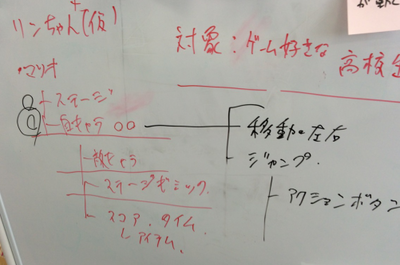 リンちゃん+(仮)
対象：ゲーム好きな
高校生
・マリオ
ステージ
自キャラ 〇〇
移動。左右
ジャンプ.
アクションボタン
敵キャラ
ステージギミック.
スコア. タイム.
アイテム.